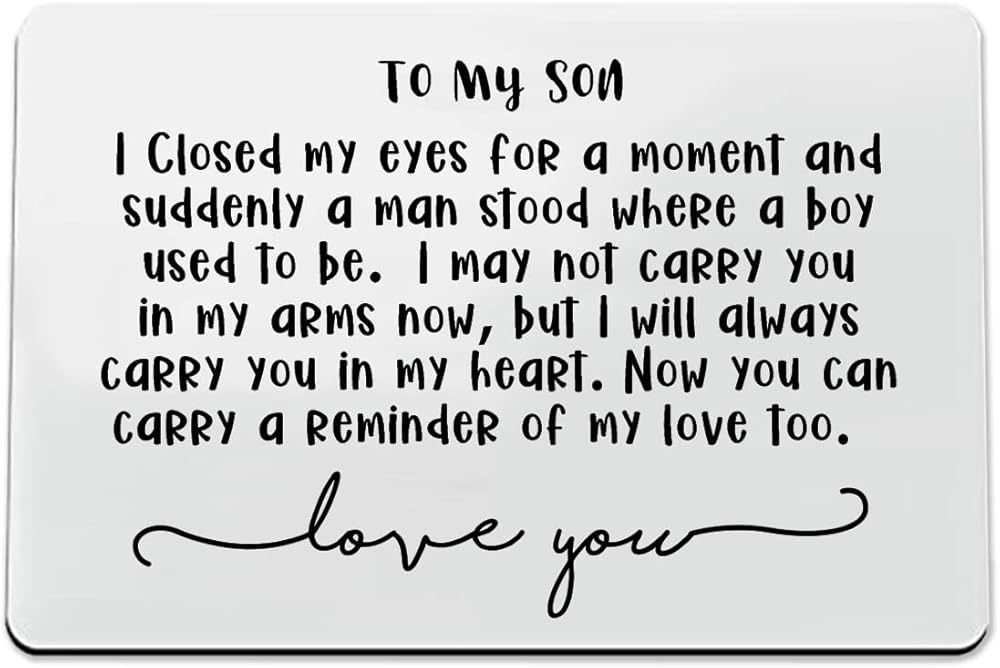 To My Son
I Closed my eyes for a moment and
suddenly a man stood where a boy
used to be. I may not carry you
in my arms now, but I will always
carry you in my heart. Now you can
carry a reminder of my love too.
love you